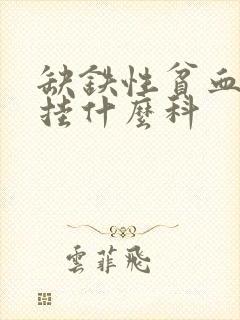 缺鉄性貧血
挂什麼科
雲菲飛